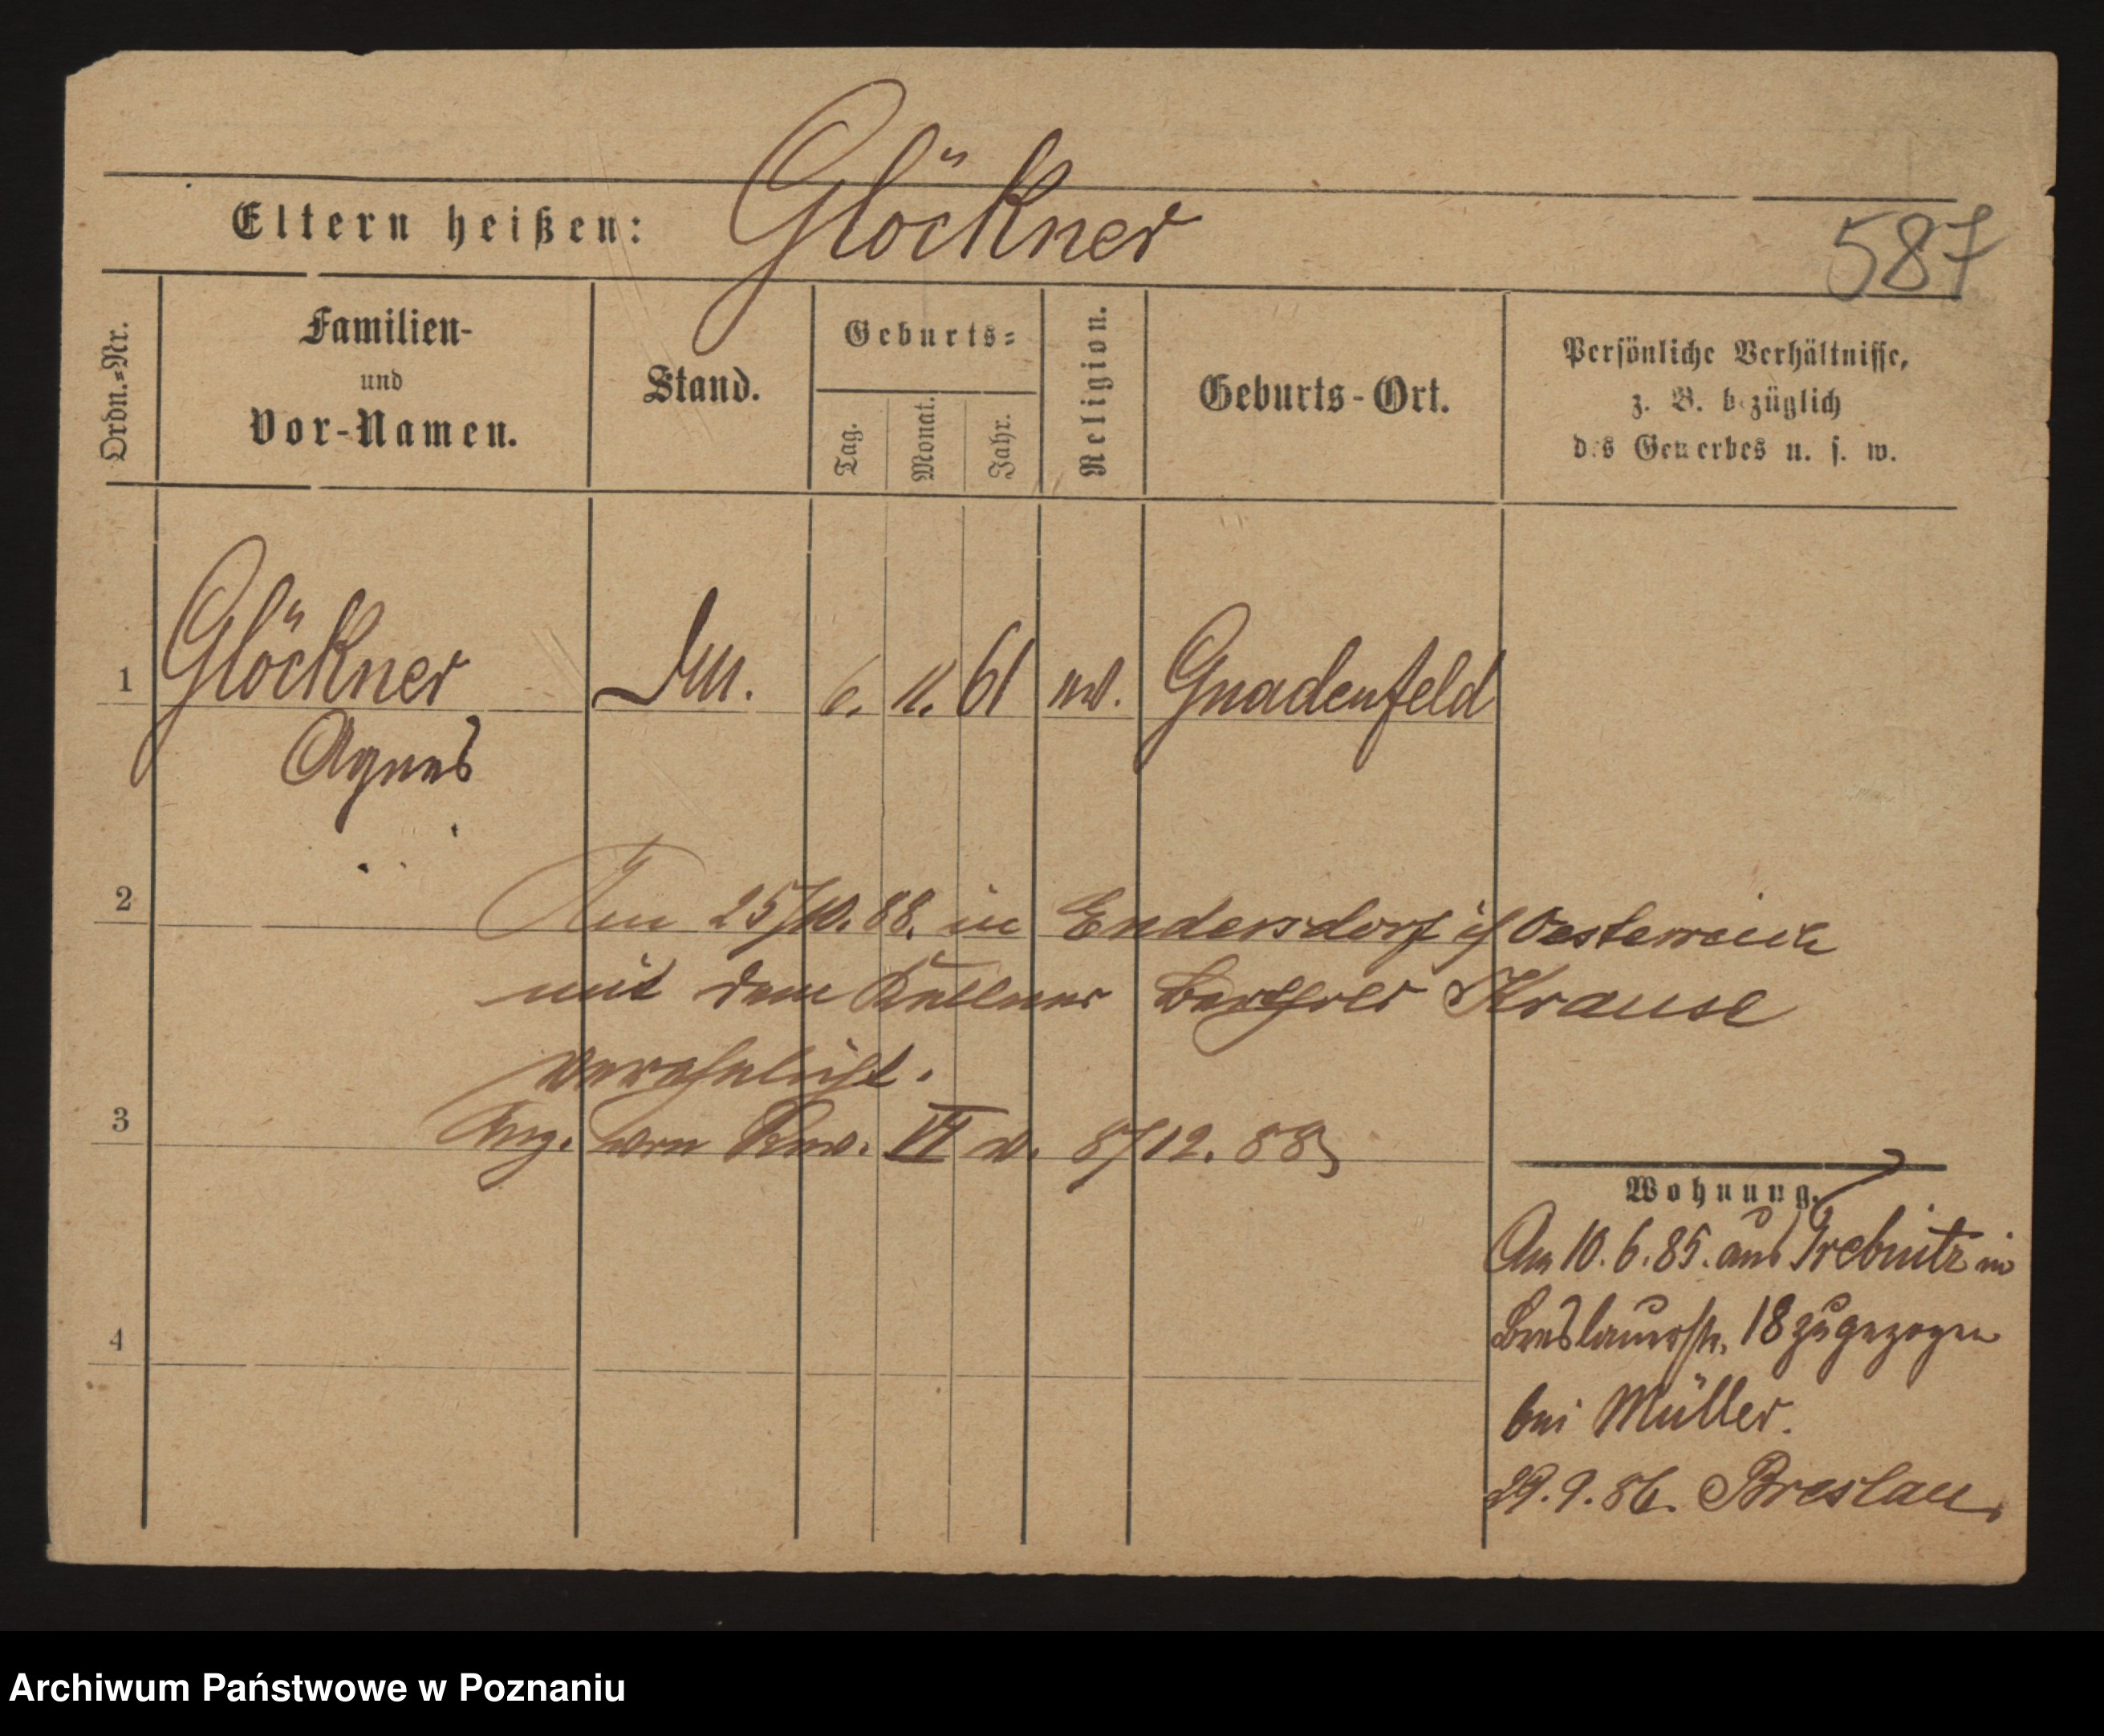 Glöckner
Eltern heißen:
587
Ordn.-Nr.
Familien-
und
Vor-Namen.
Stand.
Geburts-
Tag.
Monat.
Jahr.
Religion.
Geburts-Ort.
Persönliche Verhältnisse,
z. B. bezüglich
des Gewerbes u. s. w.
1 Glöckner 6. 11. 61 Gnadenfeld
Agnes
2 Am 25/10. 88. in Endersdorf i/ Oesterreich
mit dem Kellner Krause
verehelicht.
3 Anz. vom Rev. VI v. 8/12. 88
Wohnung.
Am 10. 6. 85. aus Trebnitz in
Breslauerstr. 18 zugezogen
4
bei Müller.
29. 9. 86. Breslau.
Archiwum Państwowe w Poznaniu